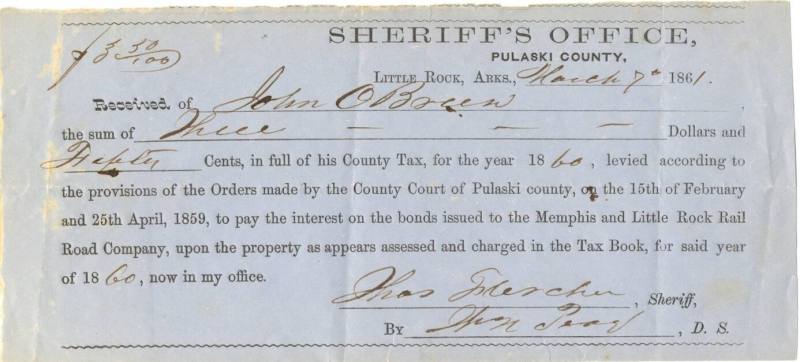 $3 50/100
SHERIFF'S OFFICE,
PULASKI COUNTY,
LITTLE ROCK, ARKS., March 7th 1861.
Received of John OBrien,
the sum of Three — — — Dollars and
Fifty Cents, in full of his County Tax, for the year 1860, levied according to
the provisions of the Orders made by the County Court of Pulaski county, on the 15th of February
and 25th April, 1859, to pay the interest on the bonds issued to the Memphis and Little Rock Rail
Road Company, upon the property as appears assessed and charged in the Tax Book, for said year
of 1860, now in my office.
Thos Fletcher, Sheriff,
By , D. S.